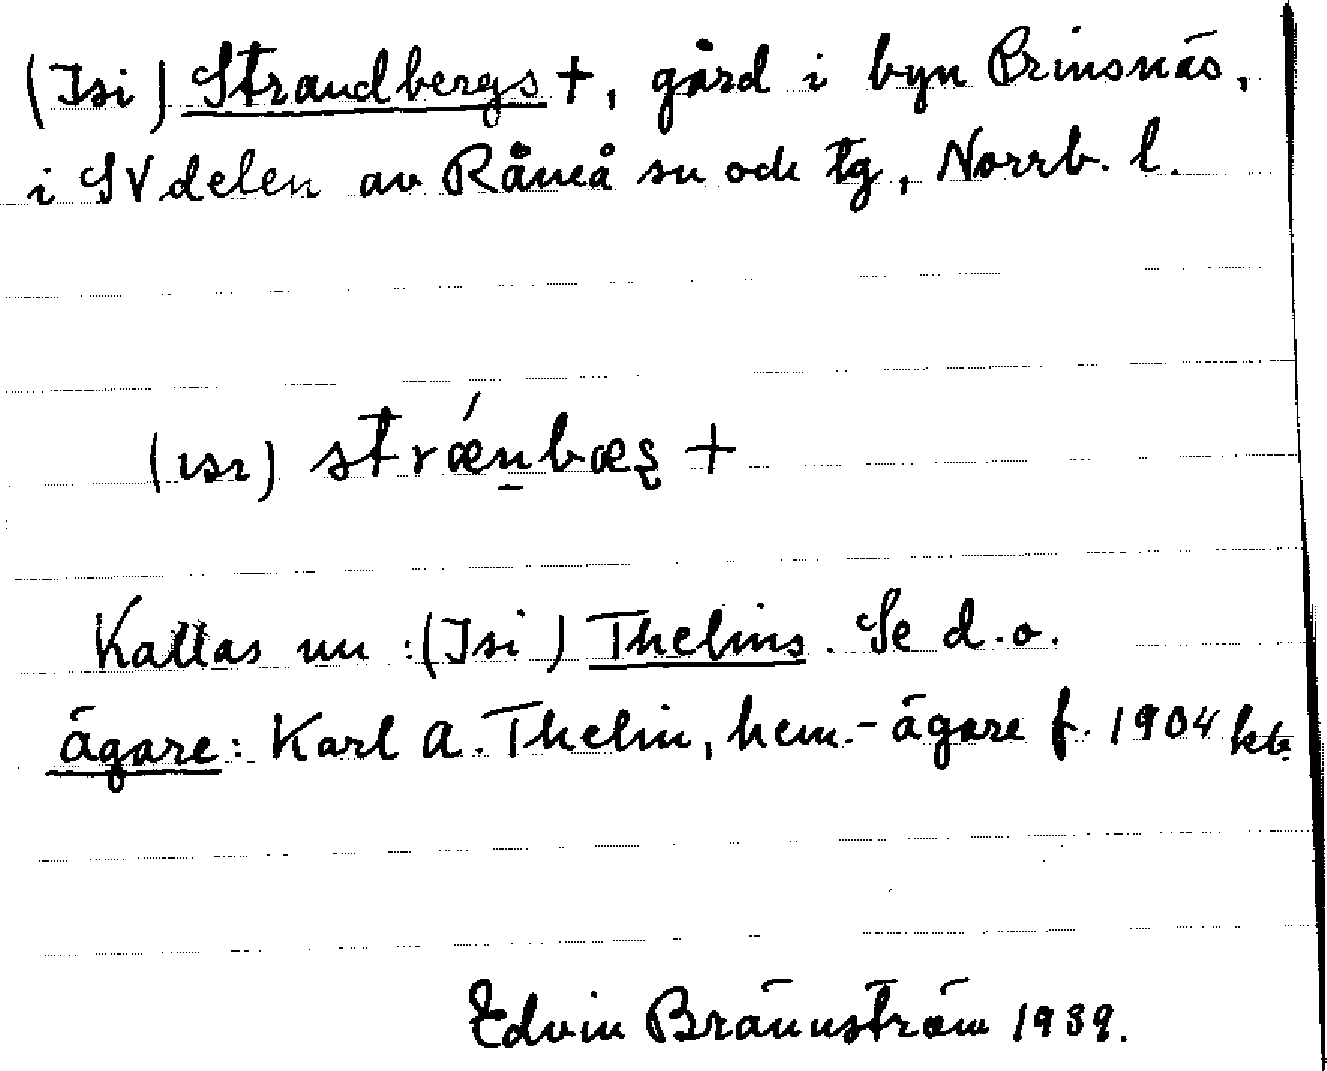 (Isi) Strandbergs +, gård i byn Prinsnäs,
i SV delen av Råneå sn och tg, Norrb. l.
(ısı) strǽn̠bæş +
Kallas nu : (Isi) Thelins. Se d. o.
ägare: Karl A. Thelin, hem.-ägare f. 1904
Edvin Brännström 1939.